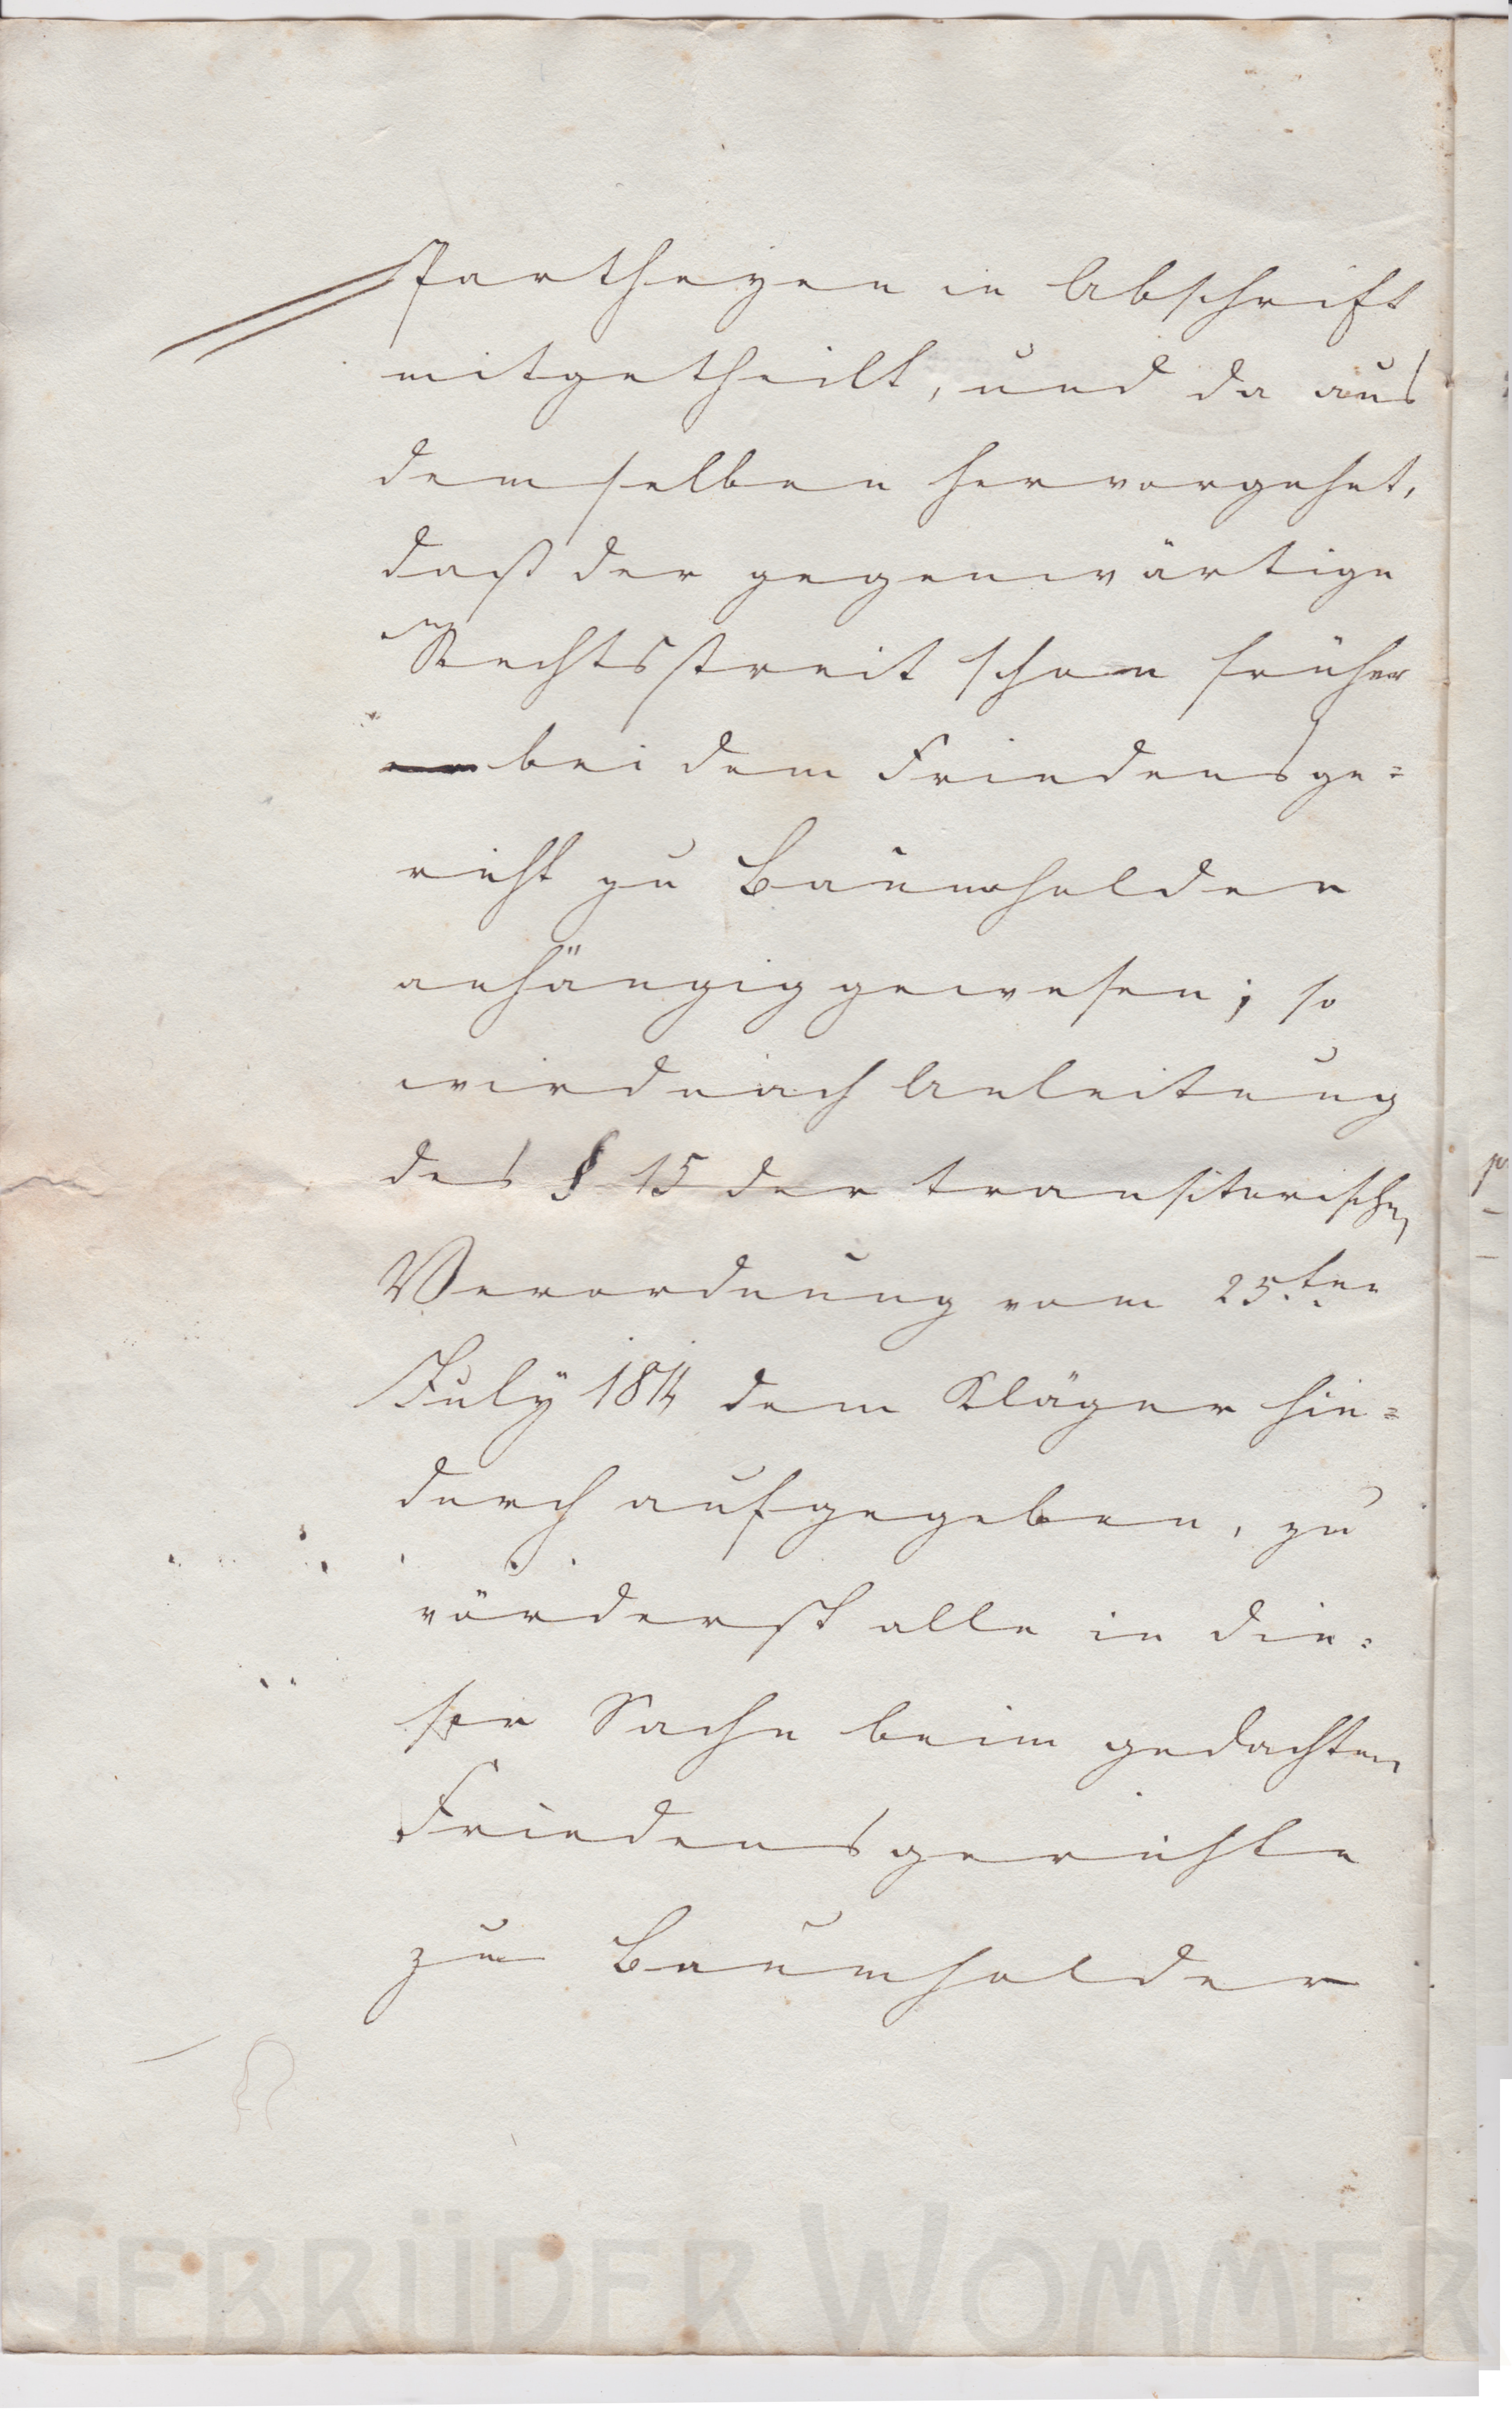 Partheyen in Abschrift
mitgetheilt, und da aus
demselben hervorgehet,
daß der gegenwärtige
Rechtsstreit schon früher
bei dem Friedensge=
richt zu Baumholder
anhängig gewesen; so
wird nach Anleitung
des § 15 der transitorischen
Verordnung vom 25ten
July 1814 dem Kläger hie=
durch aufgegeben, zu
vörderst alle in die=
ser Sache beim gedachten
Friedensgerichte
zu Baumholder
GEBRÜDER WOMMER